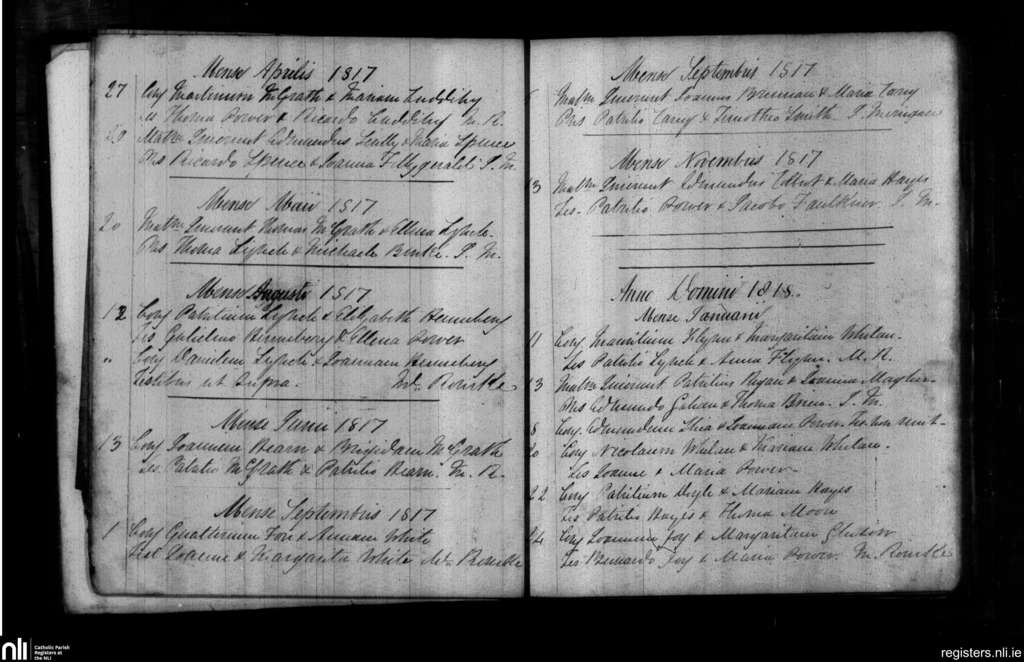 Mense Aprilis 1817
27 Conj Martinum McGrath & Mariam Cuddihy
Thoma Power & Ricardo Cuddihy M. R.
29 Matm Inierunt Edmundus Scully & Maria Spence
Pns Ricardo Spence & Joanna Fitzgerald P. M.
Mense Maii 1817
20 Matm Inierunt Thomas McGrath & Ellena Lynch
Pns Thoma Lynch & Michaele Burke. P. M.
Mense Augusti 1817
12 Conj Patritium Lynch & Elizabeth Henneberry
Tes Gulielmo Henneberry & Ellena Power
" Conj Danielem Lynch & Joannam Henneberry
Testibus ut Supra. Rourke
Mense Junii 1817
13 Conj Joannem Hearn & Brigidam McGrath
Tes. Patritio McGrath & Patritio Hearn. M. R.
Mense Septembris 1817
1 Conj & Annam White
Test Joanne & Margarita White
Mense Septembris 1817
Matm Inierunt Joannes Brennan & Maria Carry
Pns Patritio Carry & Timotheo Smith P.
Mense Novembris 1817
13 Matm Inierunt Edmundus & Maria Hayes
Tes. Patritio Power & Jacobo Faulkner. P. M.
Anno Domini 1818.
Mense Januarii
11 Conj Mauritium Flynn & Margaritam Whelan.
Tes Patritio Lynch & Anna Flynn. M. R.
13 Matm Inierunt Patritius Ryan & Joanna Magher
Pns Edmundo & Thoma Brien. P. M.
8 Conj. Edmundum Shea & Joannam Power Tes.
20 Conj Nicolaum Whelan & Whelan.
Tes Joanne & Maria Power
22 Conj Patritium Doyle & Mariam Hayes
Tes Patritio Hayes & Thoma Moon
24 Conj Joannem Joy & Margaritam
Tes. Bernardo Joy & Maria Power. M. Rourke
nli
Catholic Parish
Registers at
the NLI
registers.nli.ie